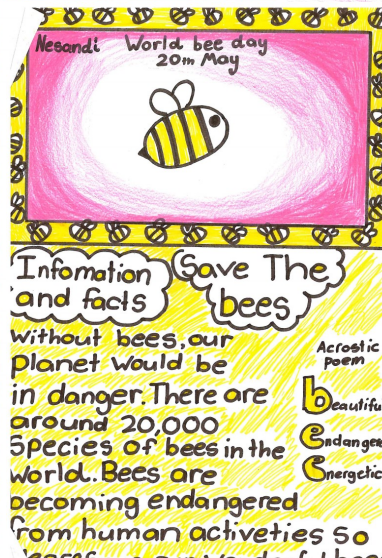 Nesandi World bee day
20th May
Infomation
and facts
Save The
bees
Without bees, our
Planet would be
in danger. There are
around 20,000
Species of bees in the
World. Bees are
becoming endangered
from human activeties so
Acrostic
poem
beautifu
endangere
energetic